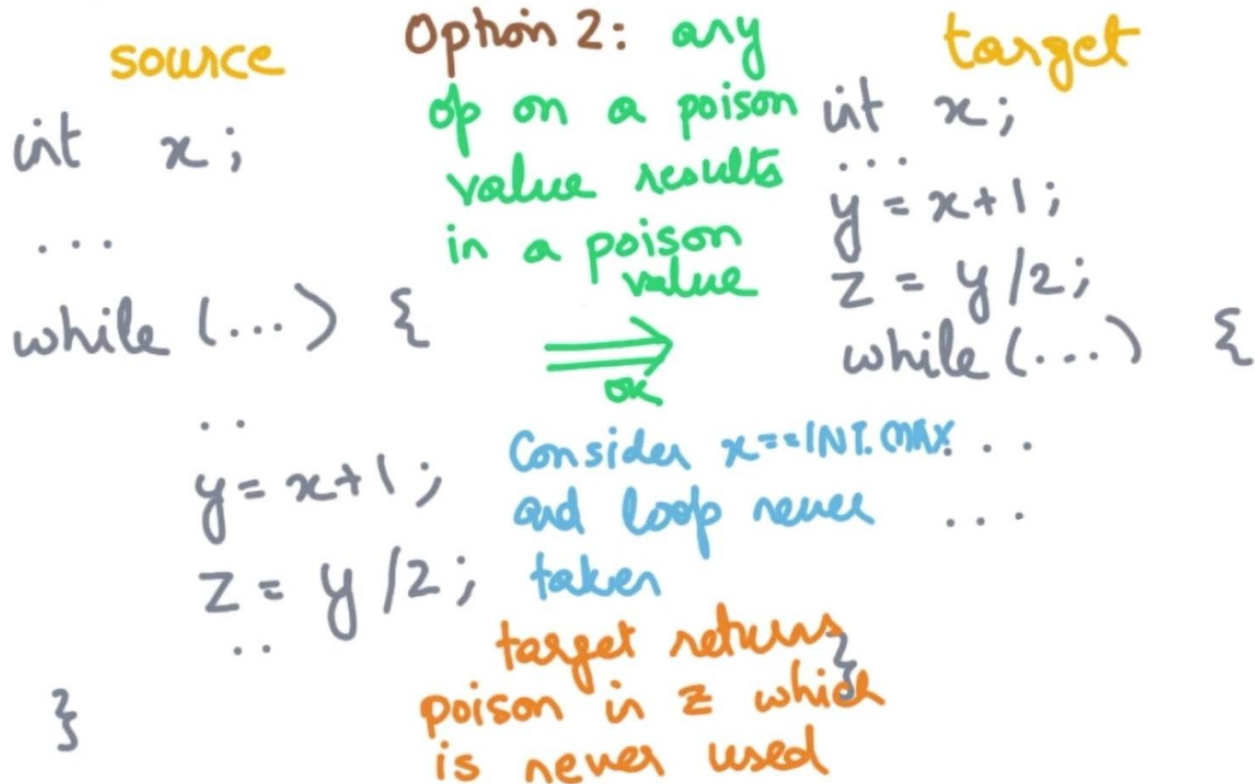 source
int x;
...
while (...) {
..
y = x+1;
z = y/2;
..
}
Option 2: any
op on a poison
value results
in a poison
value
⟹
ok
Consider x==INT.MAX
and loop never
taken
target returns
poison in z which
is never used
target
int x;
...
y = x+1;
z = y/2;
while (...) {
...
...
}